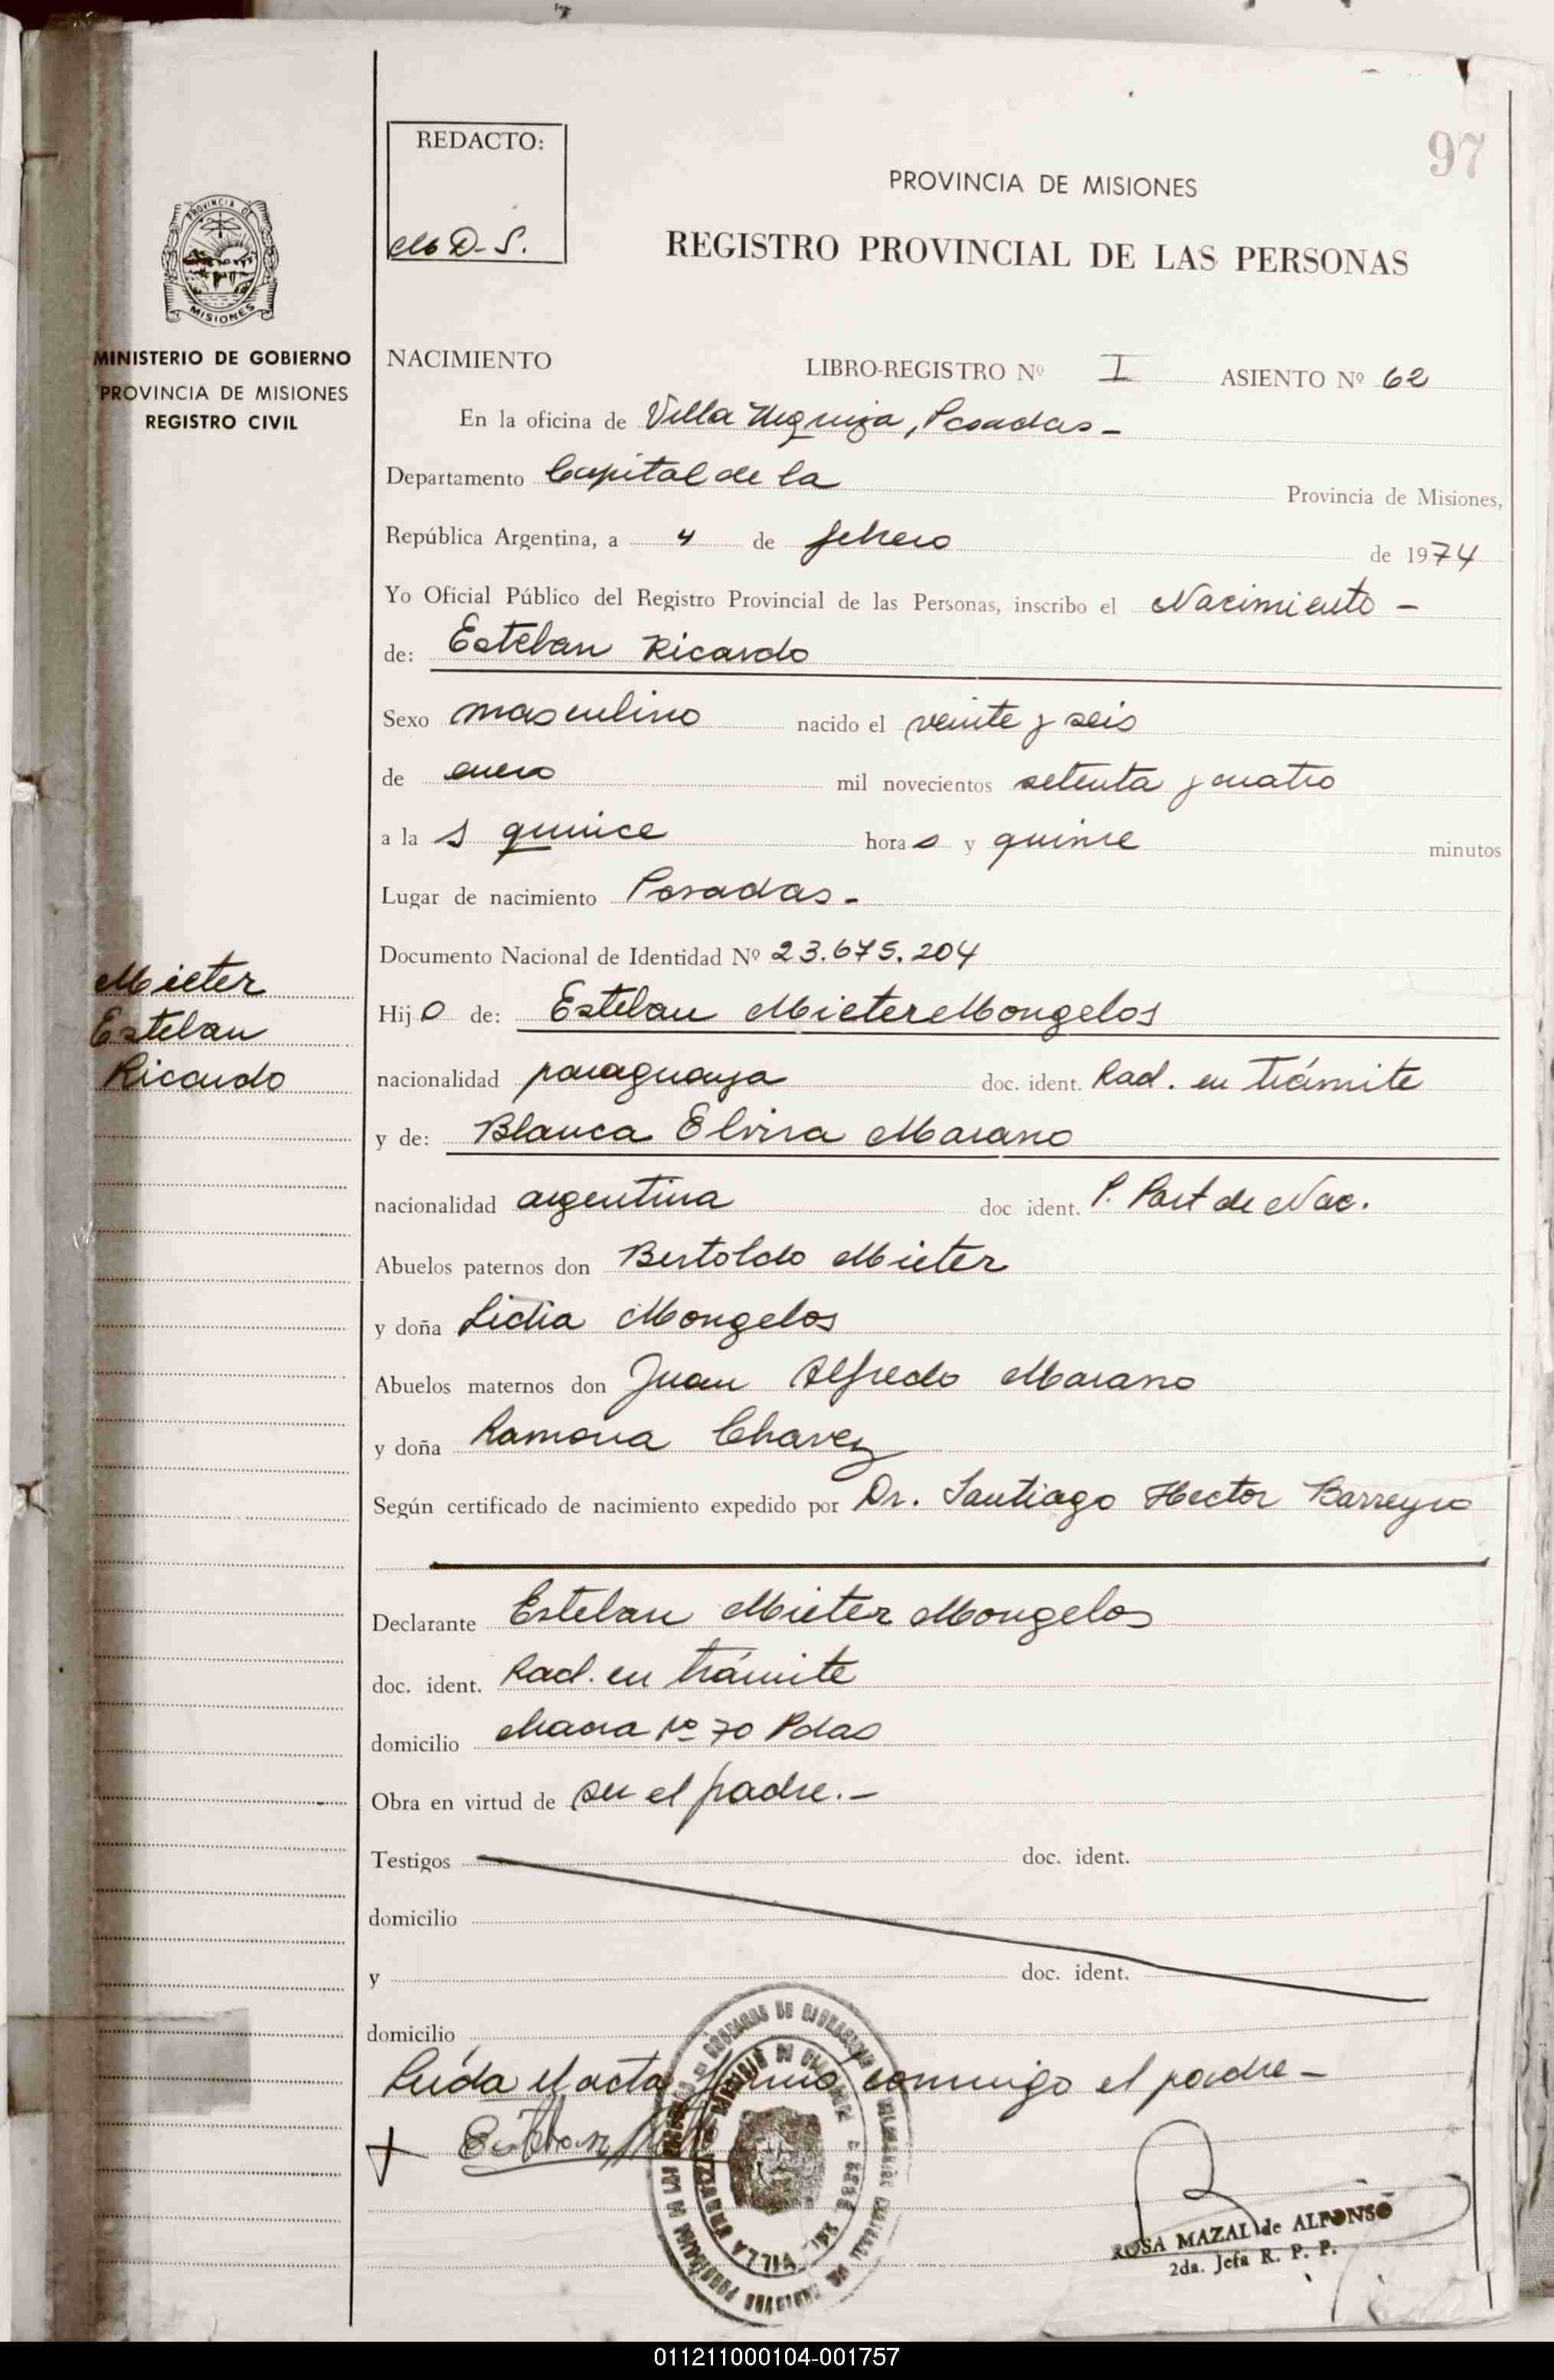 97
REDACTO:
M D-S.
PROVINCIA DE MISIONES
REGISTRO PROVINCIAL DE LAS PERSONAS
PROVINCIA DE
MISIONES
MINISTERIO DE GOBIERNO
PROVINCIA DE MISIONES
REGISTRO CIVIL
NACIMIENTO LIBRO-REGISTRO Nº I ASIENTO Nº 62
En la oficina de Villa Urquiza, Posadas-
Departamento Capital de la Provincia de Misiones,
República Argentina, a 4 de febrero de 1974
Yo Oficial Público del Registro Provincial de las Personas, inscribo el Nacimiento -
de: Esteban Ricardo
Sexo masculino nacido el veinte y seis
de enero mil novecientos setenta y cuatro
a la s quince hora s y quince minutos
Lugar de nacimiento Posadas.-
Documento Nacional de Identidad Nº 23.675.204
Mieter
Esteban
Ricardo
Hij o de: Esteban Mieter Mongelos
nacionalidad paraguaya doc. ident. Rad. en trámite
y de: Blanca Elvira Marano
nacionalidad argentina doc ident. P. Part de Nac.
Abuelos paternos don Bertoldo Mieter
y doña Lidia Mongelos
Abuelos maternos don Juan Alfredo Marano
y doña Ramona Chavez
Según certificado de nacimiento expedido por Dr. Santiago Hector Barreyro
Declarante Esteban Mieter Mongelos
doc. ident. Rad. en trámite
domicilio chacra Nº 70 Pdas
Obra en virtud de ser el padre.-
Testigos doc. ident.
domicilio
y doc. ident.
domicilio
Leída el acta firmó conmigo el padre-
VILLA URQUIZA
ROSA MAZAL de ALFONSO
2da. Jefa R. P. P.
011211000104-001757